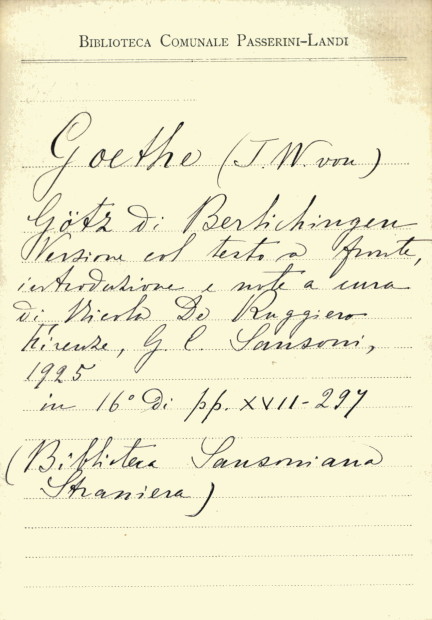 BIBLIOTECA COMUNALE PASSERINI-LANDI
Goethe (J. W. von)
Götz di Berlichingen
Versione col testo a fronte,
introduzione e note a cura
di Nicola De Ruggiero
Firenze, G. C. Sansoni,
1925
in 16° di pp. XVII-297
(Biblioteca Sansoniana
Straniera)